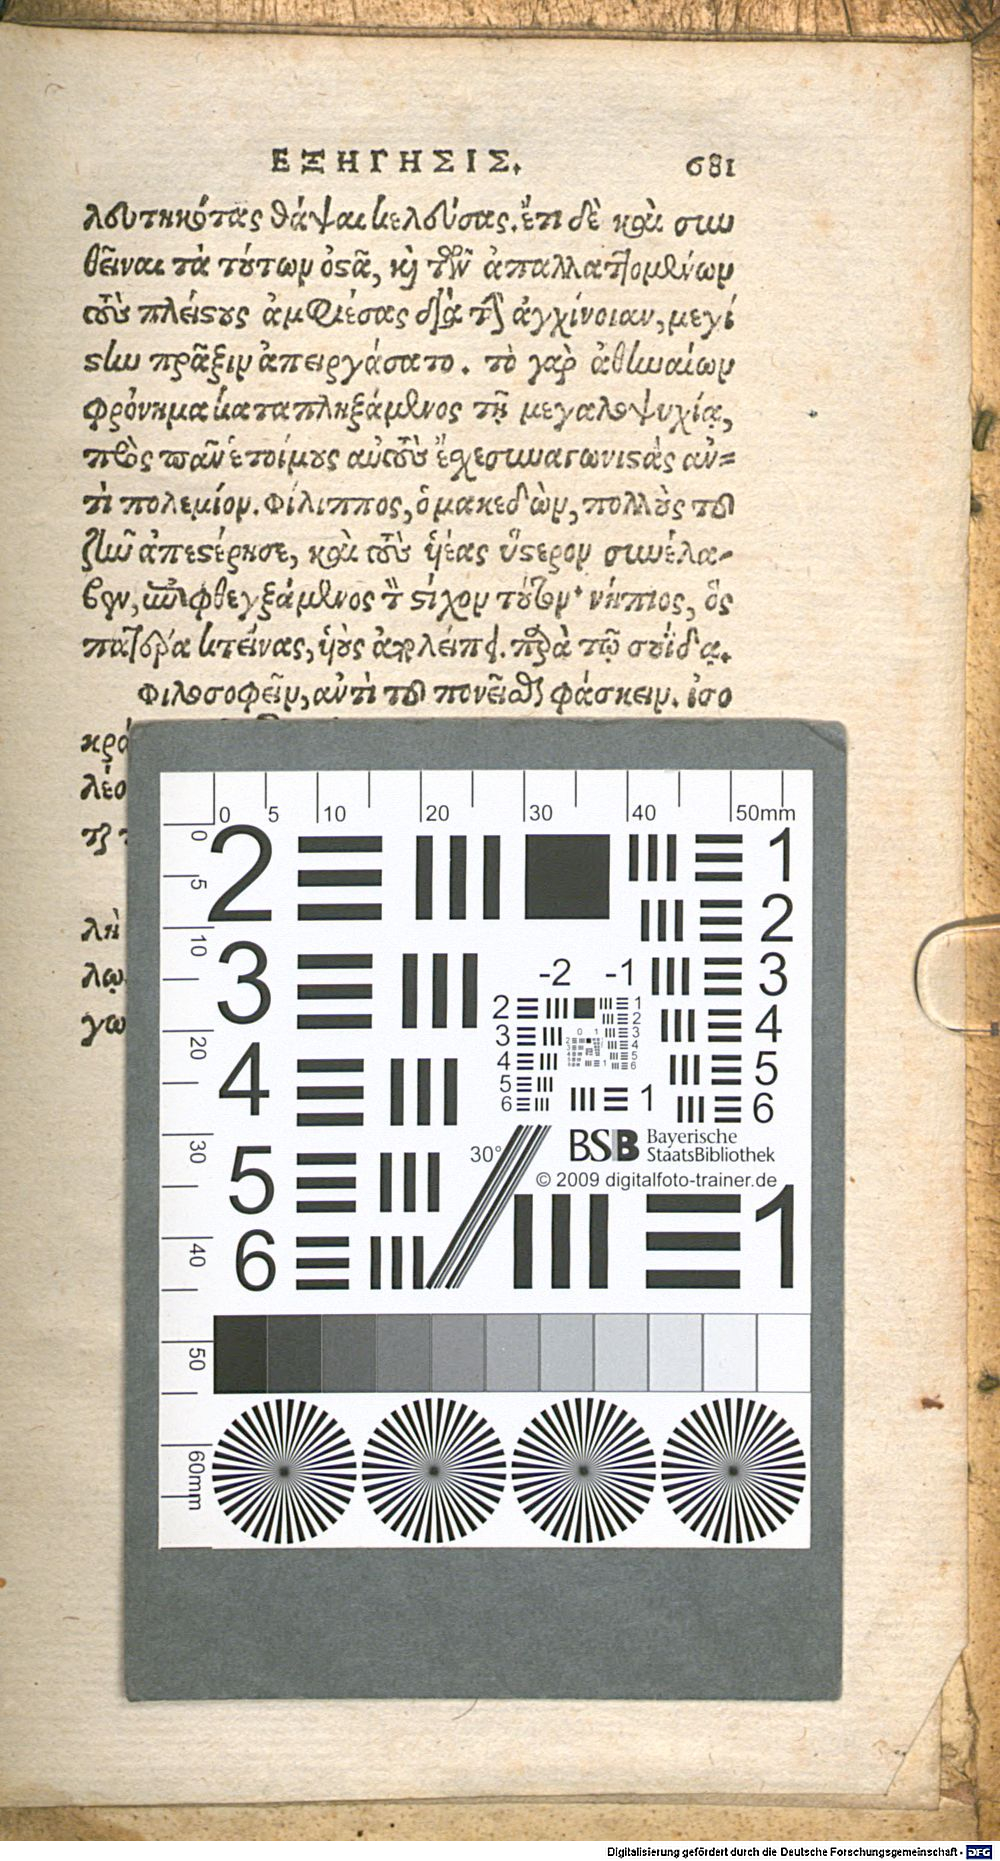 ΕΞΗΓΗΣΙΣ. 681
λευτηκότας θάψαι κελεύσας. ἔτι δὲ καὶ συν
θεῖναι τὰ τούτων ὀστᾶ, κ τῶν ἀπαλλαττομένων
τοὺς πλείστους ἀμφιέσας διὰ τὴν ἀγχίνοιαν, μεγί
στην πρᾶξιν ἀπειργάσατο. τὸ γὰρ ἀθηναίων
φρόνημα καταπληξάμενος τῇ μεγαλοψυχίᾳ,
πρὸς πᾶν ἑτοίμους αὐτοὺς ἔχε συναγωνιστὰς ἀν=
τὶ πολεμίον. Φίλιππος, ὁ μακεδὼν, πολλοὺς τοῦ
ζῆν ἀπεστέρησε, καὶ τοὺς ὑέας ὕστερον συνέλα-
βεν, ἐπιφθεγξάμενος τὸν στίχον τοῦτον· νήπιος, ὃς
πατέρα κτείνας, ὑοὺς καταλείπει. παρὰ τῷ σουΐδᾳ.
Φιλοσοφεῖν, αὐτὶ τοῦ πονεῖσθαι φάσκειν. ἰσο
κρά
λέο
λὴ
λῳ
γω
0 5 10 20 30 40 50mm
0 5 10 20 30 40 50 60mm
2 1
2
3 -2 -1 3
2 1
2
3 3
4 4
5 5
6 6
4 4
5
1 6
30°
BSB Bayerische
StaatsBibliothek
© 2009 digitalfoto-trainer.de
5 1
6
Digitalisierung gefördert durch die Deutsche Forschungsgemeinschaft - DFG